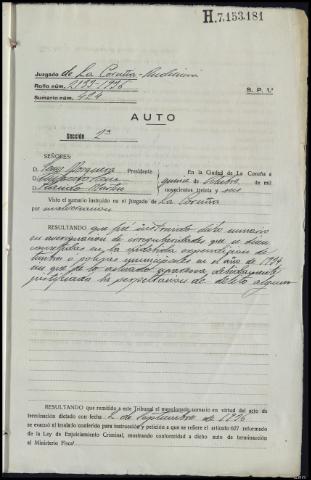 H.7.153.181
Juzgado de La Coruña - Audiencia
Rollo núm. 2133-1936
Sumario núm. 424
S. P. 1.ª
AUTO
Sección 2ª
SEÑORES:
D. Presidente
D.
D. Martín
En la Ciudad de La Coruña a
quince de Octubre de mil
novecientos treinta y seis
Visto el sumario instruído en el Juzgado de La Coruña
por malversación
RESULTANDO que fue instruido dicho sumario
en averiguación de irregularidades que se dicen
cometidas en la indebida expendición de
timbres o pólizas municipales en el año de 1934
sin que de lo actuado aparezca debidamente
justificada la perpetración de delito alguno
RESULTANDO que remitido a este Tribunal el mencionado sumario en virtud del auto de
terminación dictado con fecha 2 de Septiembre de 1936
se evacuó el traslado conferido para instrucción y petición a que se refiere el artículo 627 reformado
de la Ley de Enjuiciamiento Criminal, mostrando conformidad a dicho auto de terminación
el Ministerio Fiscal